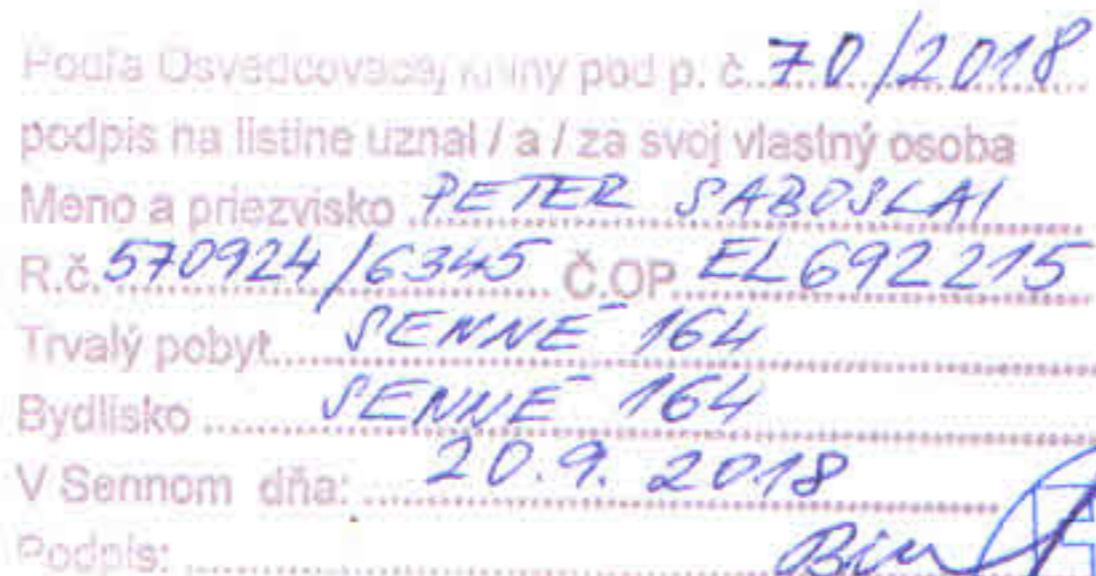 Podľa Osvedčovacej knihy pod p. č. 70/2018
podpis na listine uznal / a / za svoj vlastný osoba
Meno a priezvisko PETER SABOSLAI
R.č. 570924/6345 Č.OP EL692215
Trvalý pobyt SENNÉ 164
Bydlisko SENNÉ 164
V Sennom dňa: 20.9. 2018
Podpis: